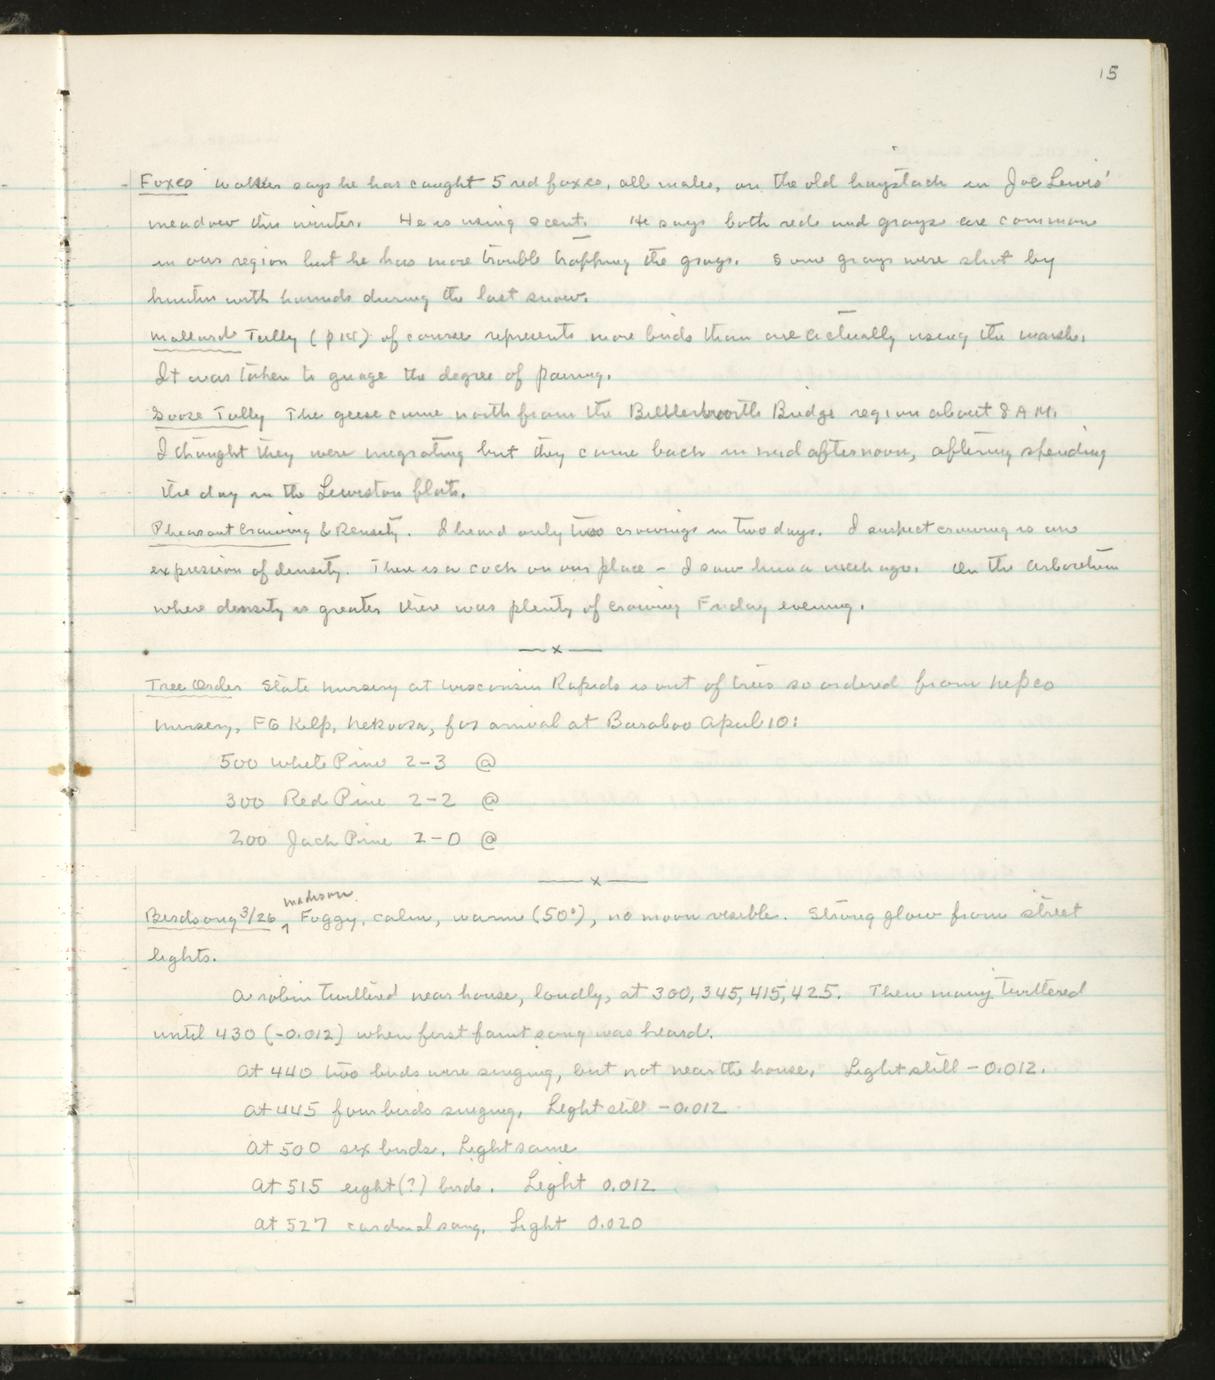 15
Foxes Walter says he has caught 5 red foxes, all males, on the old haystack in Joe Lewis'
meadow this winter. He is using scent. He says both reds and grays are common
in our region but he has more trouble trapping the grays. Some grays were shot by
hunters with hounds during the last snow.
Mallard Tally (p 14) of course represents more birds than are actually using the marsh.
It was taken to guage the degree of pairing.
Goose Tally The geese came north from the Bridge region about 8 AM.
I thought they were migrating but they came back in mid afternoon, after spending
the day in the Lewiston flats.
Pheasant Crowing & Density. I heard only two crowings in two days. I suspect crowing is an
expression of density. There is a cock on our place - I saw him a week ago. On the Arboretum
where density is greater there was plenty of crowing Friday evening.
—x—
Tree Order State nursery at Wisconsin Rapids is out of trees so ordered from Nepco
Nursery, FG Kilp, Nekoosa, for arrival at Baraboo April 10:
500 White Pine 2-3 @
300 Red Pine 2-2 @
200 Jack Pine 2-0 @
—x—
Birdsong 3/26, Madison. Foggy, calm, warm (50°), no moon visible. Strong glow from street
lights.
A robin twittered near house, loudly, at 300, 345, 415, 425. Then many twittered
until 430 (-0.012) when first faint song was heard.
At 440 two birds were singing, but not near the house. Light still -0.012.
At 445 four birds singing. Light still -0.012
At 500 six birds. Light same
At 515 eight(?) birds. Light 0.012
At 527 cardinal sang. Light 0.020